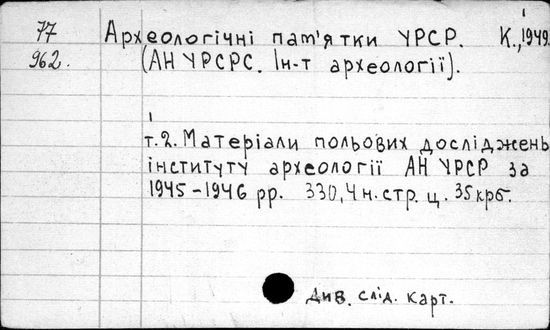 77 Археологічні пам'ятки УРСР. К., 1949.
962. (АН УРСРС. Ін-т археології).
т.2. Матеріали польових досліджень
інституту археології АН УРСР за
1945-1946 рр. 330,4н.стр. ц. 35крб.
Див. слід. карт.